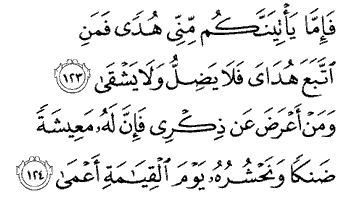 فَإِمَّا يَأْتِيَنَّكُم مِّنِّى هُدًى فَمَنِ
ٱتَّبَعَ هُدَاىَ فَلَا يَضِلُّ وَلَا يَشْقَىٰ ١٢٣
وَمَنْ أَعْرَضَ عَن ذِكْرِى فَإِنَّ لَهُۥ مَعِيشَةً
ضَنكًا وَنَحْشُرُهُۥ يَوْمَ ٱلْقِيَـٰمَةِ أَعْمَىٰ ١٢٤